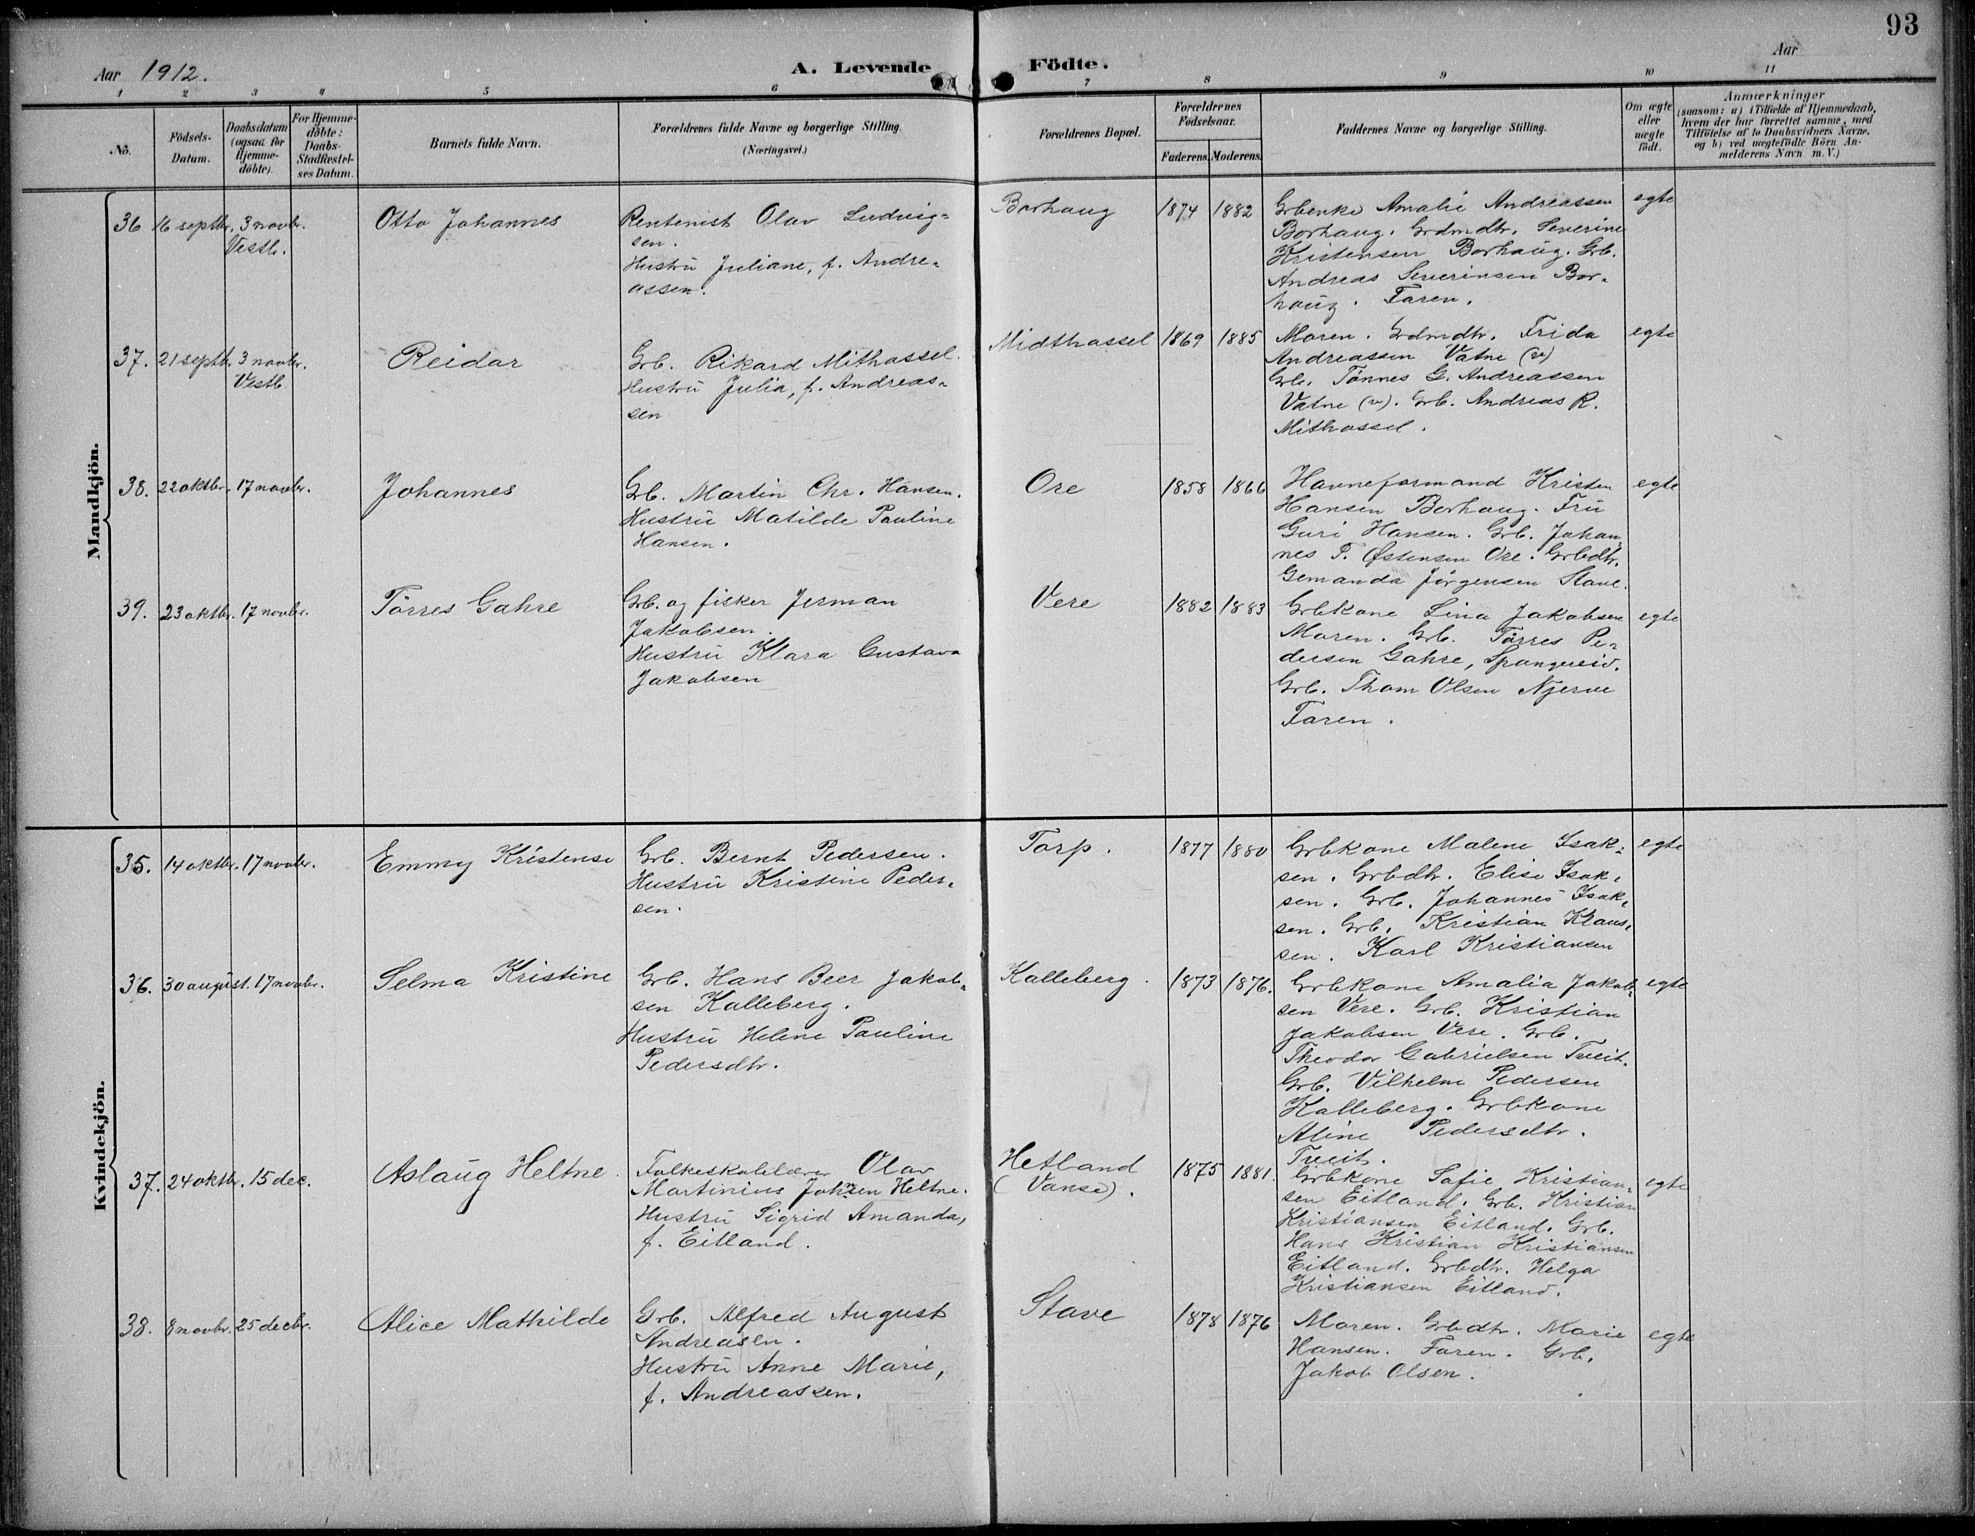 93
Aar 1912.
A. Levende
Födte.
Aar
1 2 3 4 5 6 7 8 9 10 11
No.
Födsels-
Datum.
Daabsdatum
(ogsaa for
Hjemme-
döbte).
For Hjemme-
döbte:
Daabs-
Stadfæstel-
ses Datum.
Barnets fulde Navn.
Forældrenes fulde Navne og borgerlige Stilling.
(Næringsvei.)
Forældrenes Bopæl.
Forældrenes
Födselsaar.
Faderens. Moderens.
Faddernes Navne og borgerlige Stilling.
Om ægte
eller
uægte
födt.
Anmærkninger
(saasom: a) i Tilfælde af Hjemmedaab,
hvem der har forrettet samme, med
Tilföielse af to Daabsvidners Navne.
og b) ved uægtefödte Börn An-
melderens Navn m. V.)
Mandkjön.
36 16 septbr. 3 novbr.
Vestb.
Otto Johannes
Rentenist Olav Ludvig-
sen.
Hustru Juliane, f. Andre-
assen.
Borhaug
1874 1882
Grbenke Amalie Andreassen
Borhaug. Grdmdtr. Severine
Kristensen Borhaug. Grb.
Andreas Severinsen Bor-
haug. Faren.
egte
37. 21 septbr. 3 novbr.
Vestb
Reidar
Grb. Rikard Mithassel.
Hustru Julia, f. Andreas-
sen
Midthassel
1869 1885
Moren. Grdmdtr. Frida
Andreassen Vatne (v)
Grb. Tønnes G. Andreassen
Vatne (v). Grb. Andreas R.
Mithassel.
egte
38. 22 oktbr. 17 novbr.
Johannes
Grb. Martin Chr. Hansen.
Hustru Matilde Pauline
Hansen.
Ore
1858 1866
Havneformand Kristen
Hansen Borhaug. Fru
Guri Hansen. Grb. Johan-
nes P. Østensen Ore. Grbdtr.
Gemanda Jørgensen Stave.
egte
39. 23 oktbr. 17 novbr.
Tørres Gahre
Grb. og fisker Jerman
Jakobsen.
Hustru Klara Gustava
Jakobsen
Vere
1882 1883
Grbkone Lina Jakobsen
Moren. Grb. Tørres Pe-
dersen Gahre, Spangereid.
Grb. Thom Olsen Njerve
Faren.
egte
Kvindekjön.
35. 14 oktbr. 17 novbr.
Emmy Kristense
Grb. Bernt Pedersen.
Hustru Kristine Peder-
sen.
Torp.
1877 1880
Grbkone Malene Isak-
sen. Grbdtr. Elise Isak-
sen. Grb. Johannes Isak-
sen. Grb. Kristian Klaus-
sen. Karl Kristiansen
egte
36. 30 august. 17 novbr.
Selma Kristine
Grb. Hans Beer Jakob-
sen Kalleberg.
Hustru Helene Pauline
Pedersdtr.
Kalleberg.
1873 1876.
Grbkone Amalia Jakob-
sen Vere. Grb. Kristian
Jakobsen Vere. Grb.
Theodor Gabrielsen Tveit.
Grb. Vilhelm Pedersen
Kalleberg. Grbkone
Aline Pedersdtr.
Tveit.
egte
37. 24 oktbr. 15 dec.
Aslaug Heltne.
Folkeskolelærer Olav
Martinius Johnsen Heltne.
Hustru Sigrid Amanda,
f. Eitland.
Hetland
(Vanse).
1875 1881.
Grbkone Sofie Kristian-
sen Eitland. Grb. Kristian
Kristiansen Eitland. Grb.
Hans Kristian Kristiansen
Eitland. Grbdtr. Helga
Kristiansen Eitland.
egte
38. 8 novbr. 25 decbr.
Alice Mathilde
Grb. Alfred August
Andreasen.
Hustru Anne Marie,
f. Andreassen.
Stave
1878 1876
Moren. Grbdtr. Marie
Hansen. Faren. Grb.
Jakob Olsen.
egte